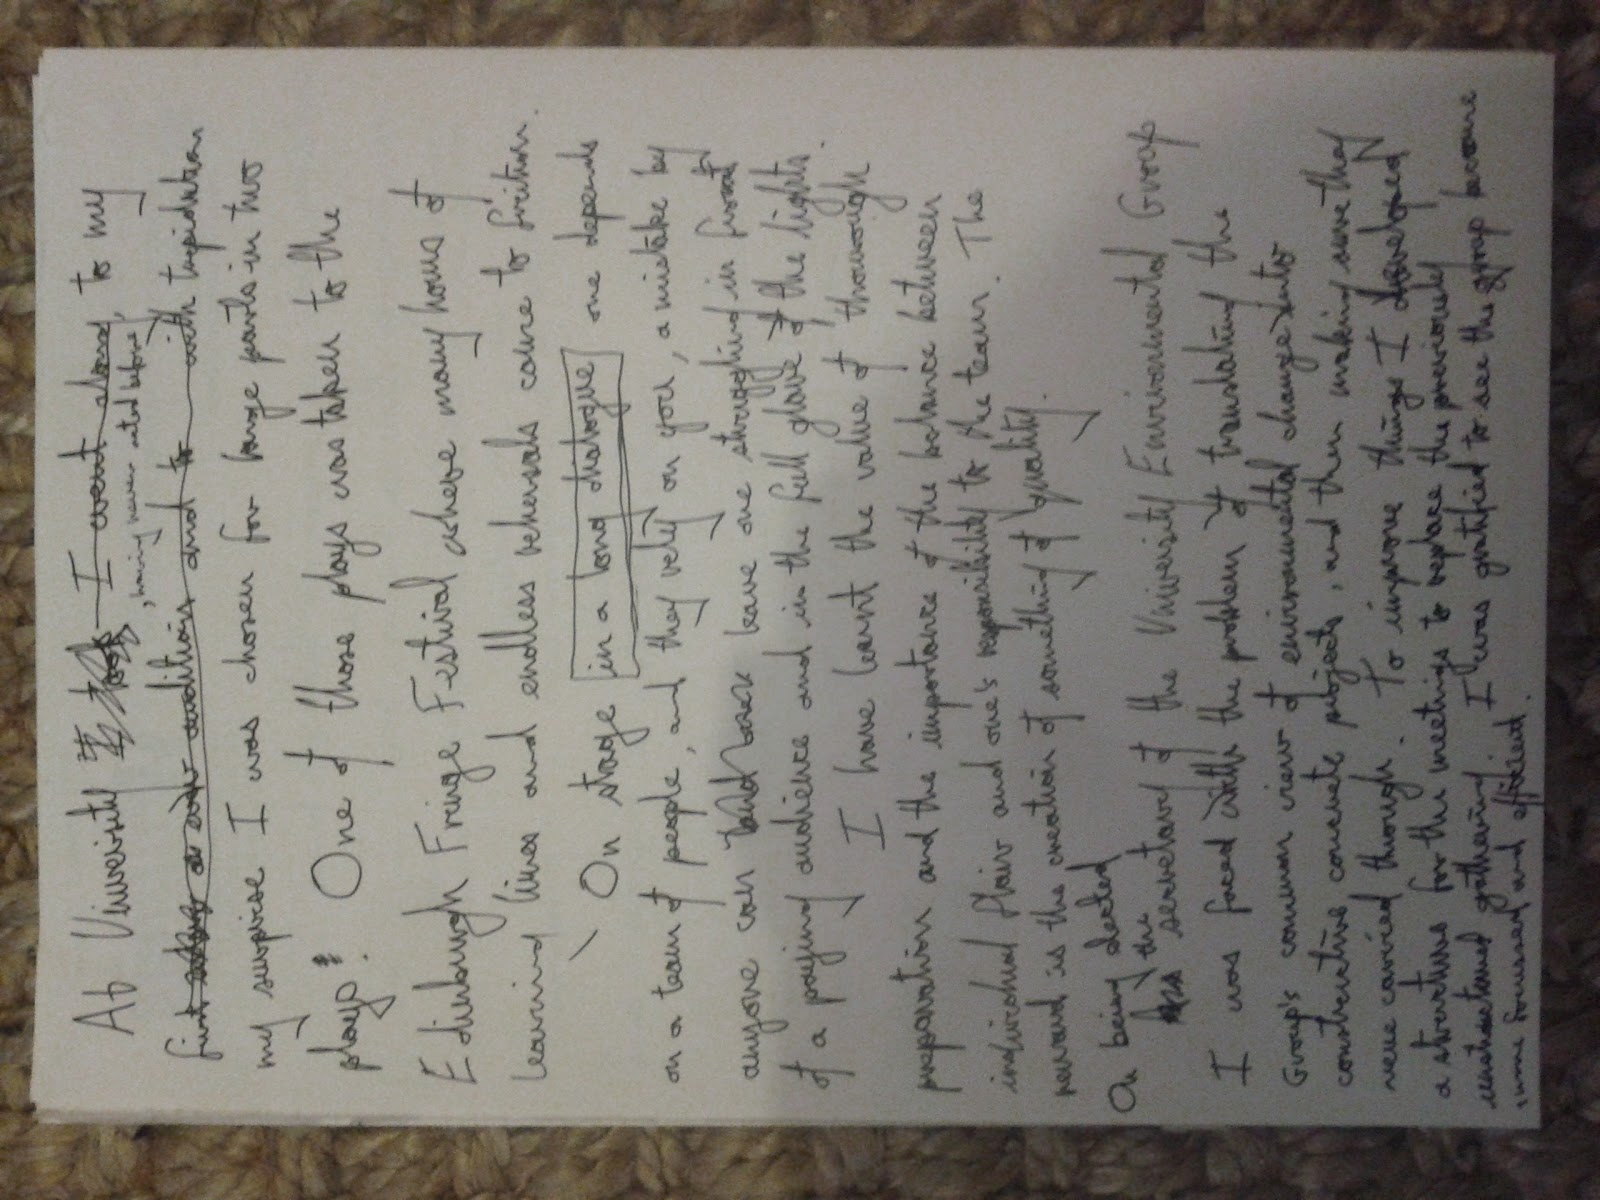 At University I went along to my
, having never acted before,
first ever audition and to with trepidation
my surprise I was chosen for large parts in two
plays. One of those plays was taken to the
Edinburgh Fringe Festival where many hours of
learning lines and endless rehersals came to fruition.
On stage in a long dialogue one depends
on a team of people, and they rely on you, a mistake by
anyone can leave one struggling in front
of a paying audience and in the full glare of the lights.
I have learnt the value of thorough
preparation and the importance of the balance between
individual flair and one's responsibility to the team. The
reward is the creation of something of quality.
On being elected
the secretary of the University Environmental Group
I was faced with the problem of translating the
Group's common view of environmental change into
constructive concrete projects, and then making sure they
were carried through. To improve things I developed
a structure for the meetings to replace the previously
gathering. I was gratified to see the group become
more focused and efficient.